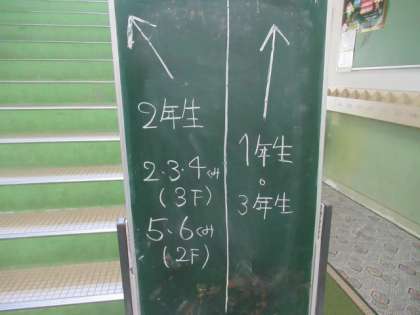 2年生
2・3・4くみ
(3F)
5・6くみ
(2F)
1年生
・
3年生